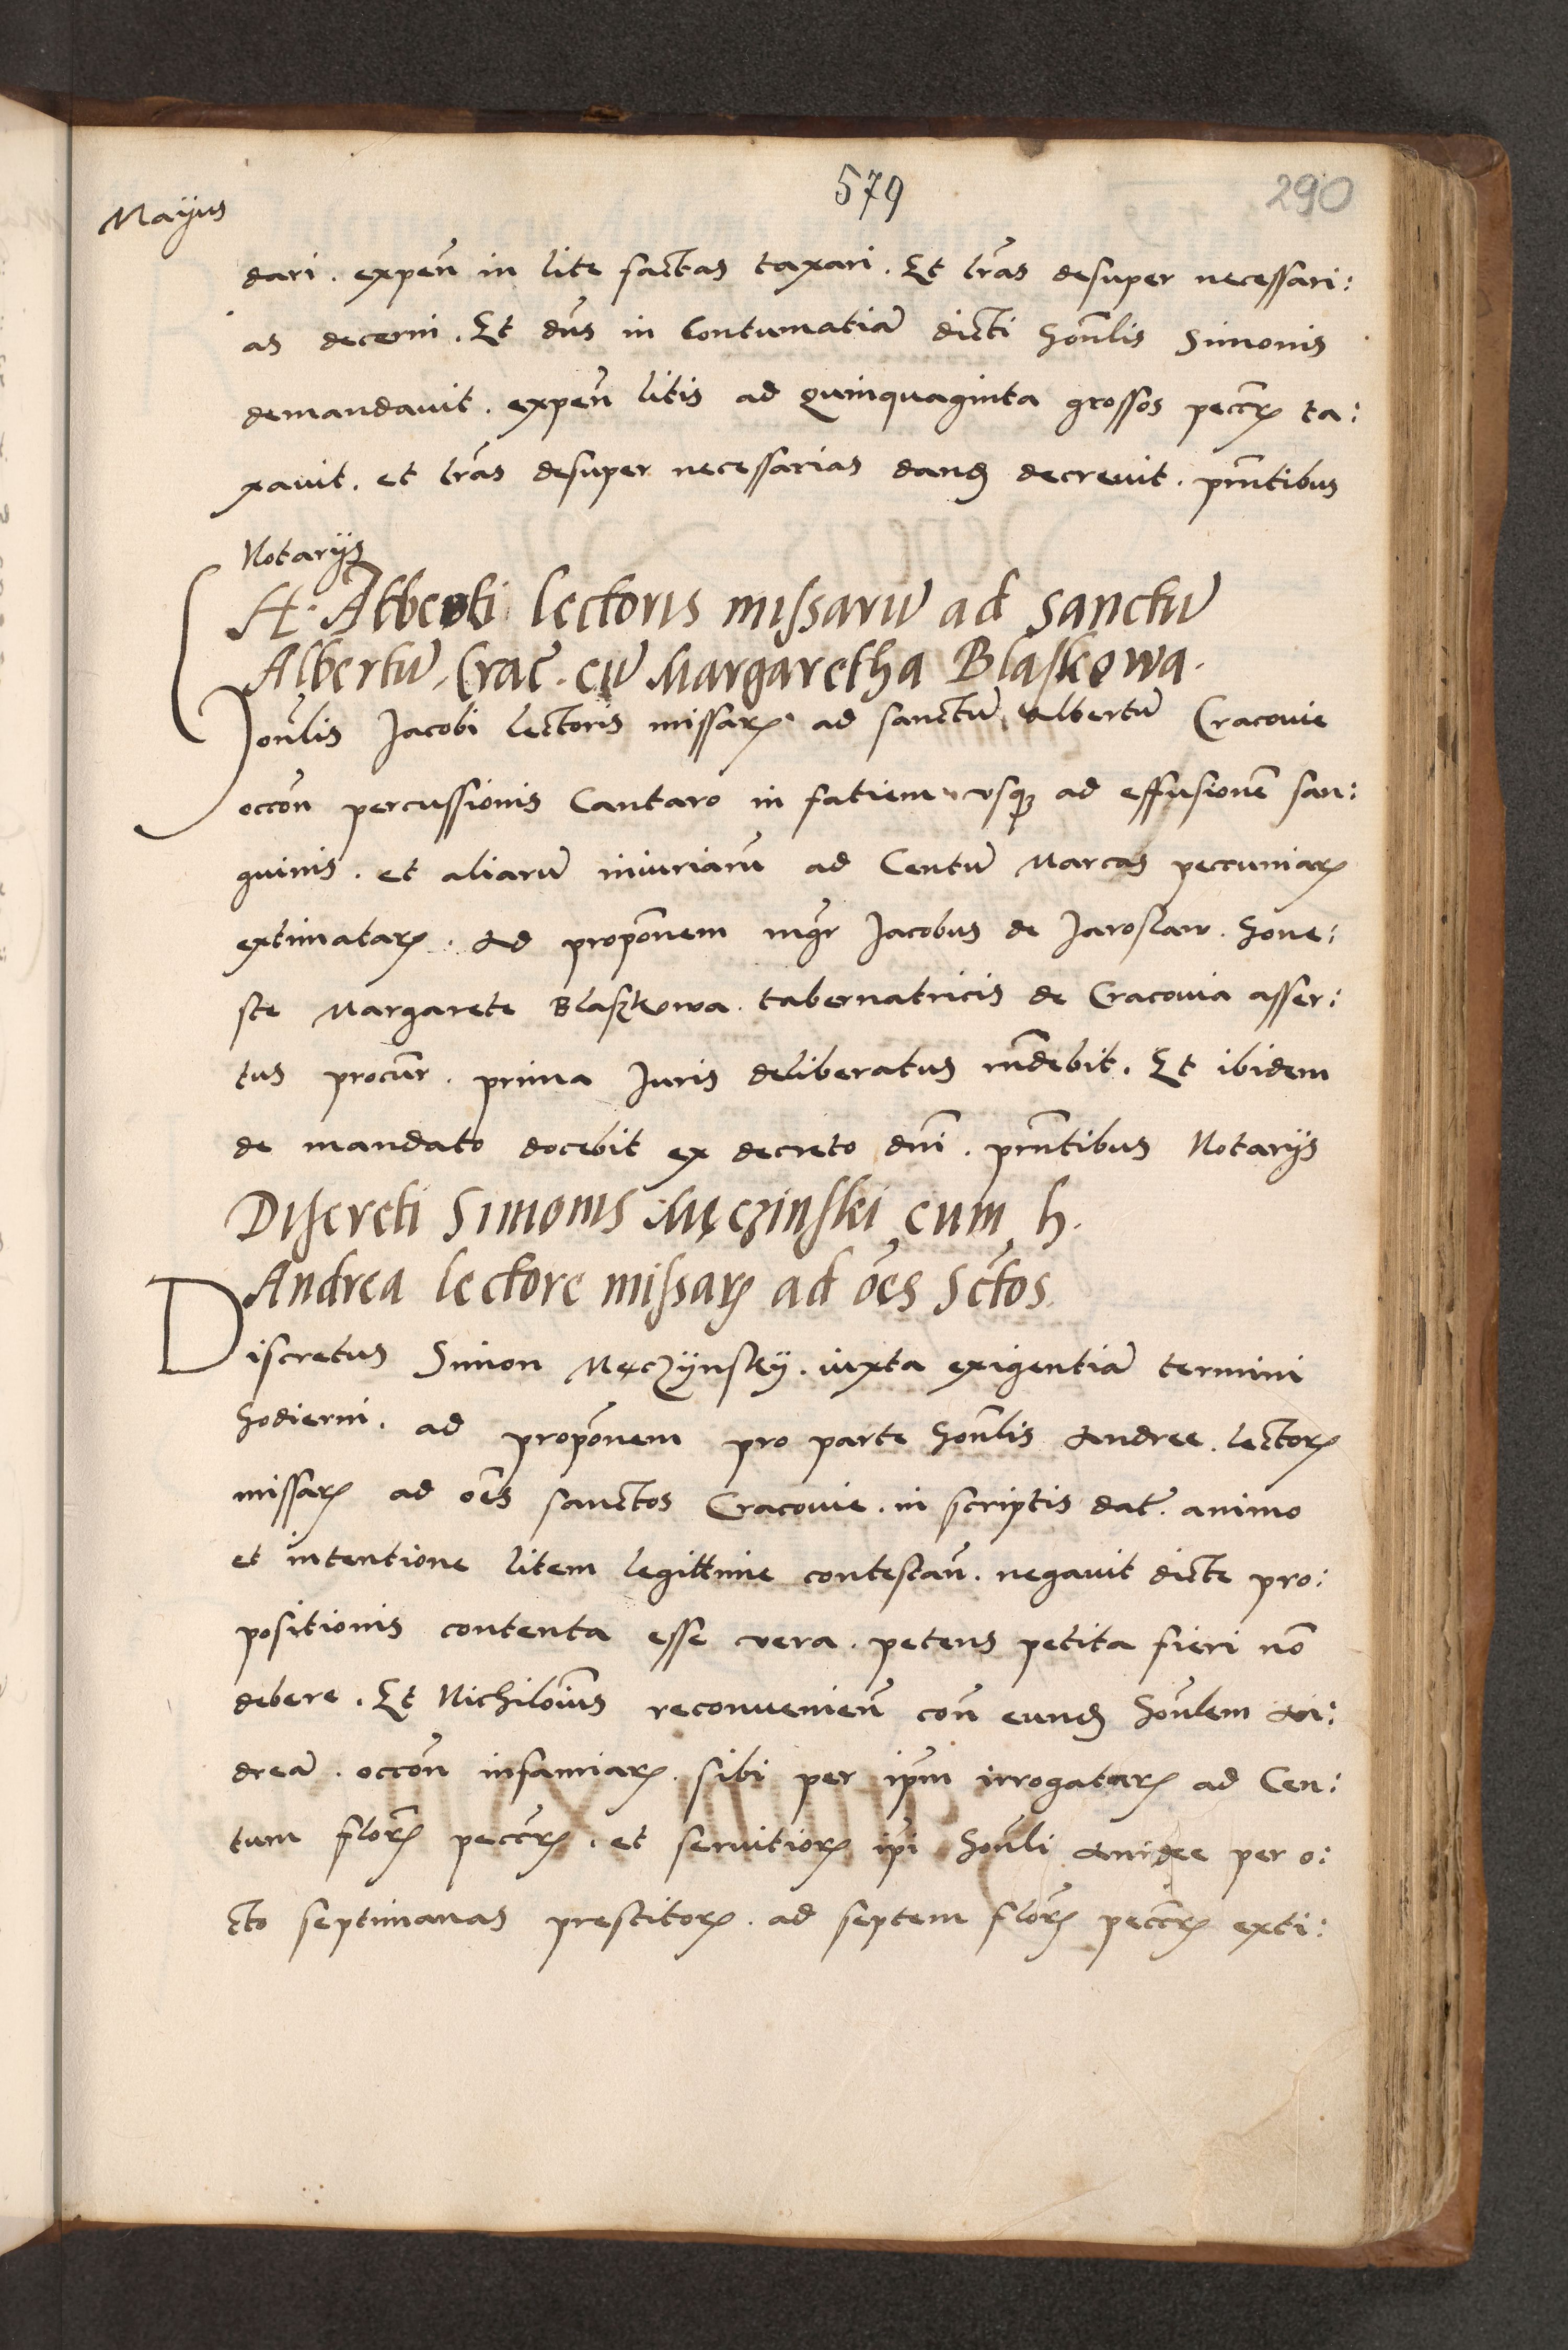 579
290
Mayus
dari. expen̄ in lite factas taxari. Et lr̄as desuper necessari:
as decerni. Et dn̄s in Contumatiā dicti Hon̄lis Simonis
demandavit. expen̄ litis ad Quinquaginta grossos pecc̄ꝝ ta:
xavit. et lr̄as desuper necessarias danḍ decrevit. pn̄tibus
Notarijs
H. Alberti lectoris missarū ad Sanctū
Albertū. Crac̄. cū Margaretha Blaskowa.
Honlis Jacobi lectoris missaꝝ ad sanctū Albertū Cracovie
occōn percussionis Cantaro in fatiem vsqꝫ ad effusionē san:
guinis. et aliarū iniuriarū ad Centū Marcas peccuniaꝝ
extimataꝝ. Ad propōnem mgr̄ Jacobus de Jaroslaw. Hone:
ste Margarete Blaskowa. tabernatricis de Cracovia asser:
tus procur̄. prima Juris deliberatus rn̄debit. Et ibidem
de mandato docebit ex decreto dn̄i. pn̄tibus Notarijs
Discreti Simonis Męczinski cum h.
Andrea lectore missaꝝ ad ōes Sctōs
Discretus Simon Męczÿnskÿ. iuxta exigentiā termini
hodierni. ad propōnem pro parte Hon̄lis Andree. lectoꝝ
missaꝝ ad oēs sanctos Cracovie. in scriptis dat̄. animo
et intentione litem legittime contestan̄. negavit dicte pro:
positionis contenta esse vera. petens petita fieri nō
debere. Et Nichilomi̅us reconvenien̄ con̄ eunḍ Hon̄lem An:
dreā. occōn infamiaꝝ. sibi per ip̄m irrogataꝝ ad Cen:
tum floꝝ pecc̄ꝝ. et servitioꝝ ip̄i Hon̄li Andree per o:
cto septimanas prestitoꝝ. ad septem floꝝ pecc̄ꝝ exti: